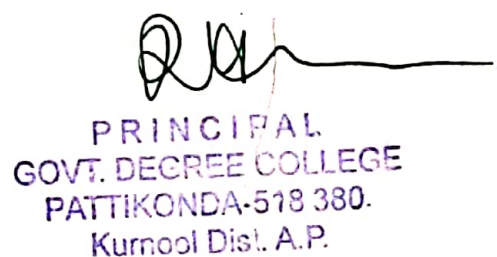 PRINCIPAL
GOVT. DEGREE COLLEGE
PATTIKONDA-518 380.
Kurnool Dist. A.P.